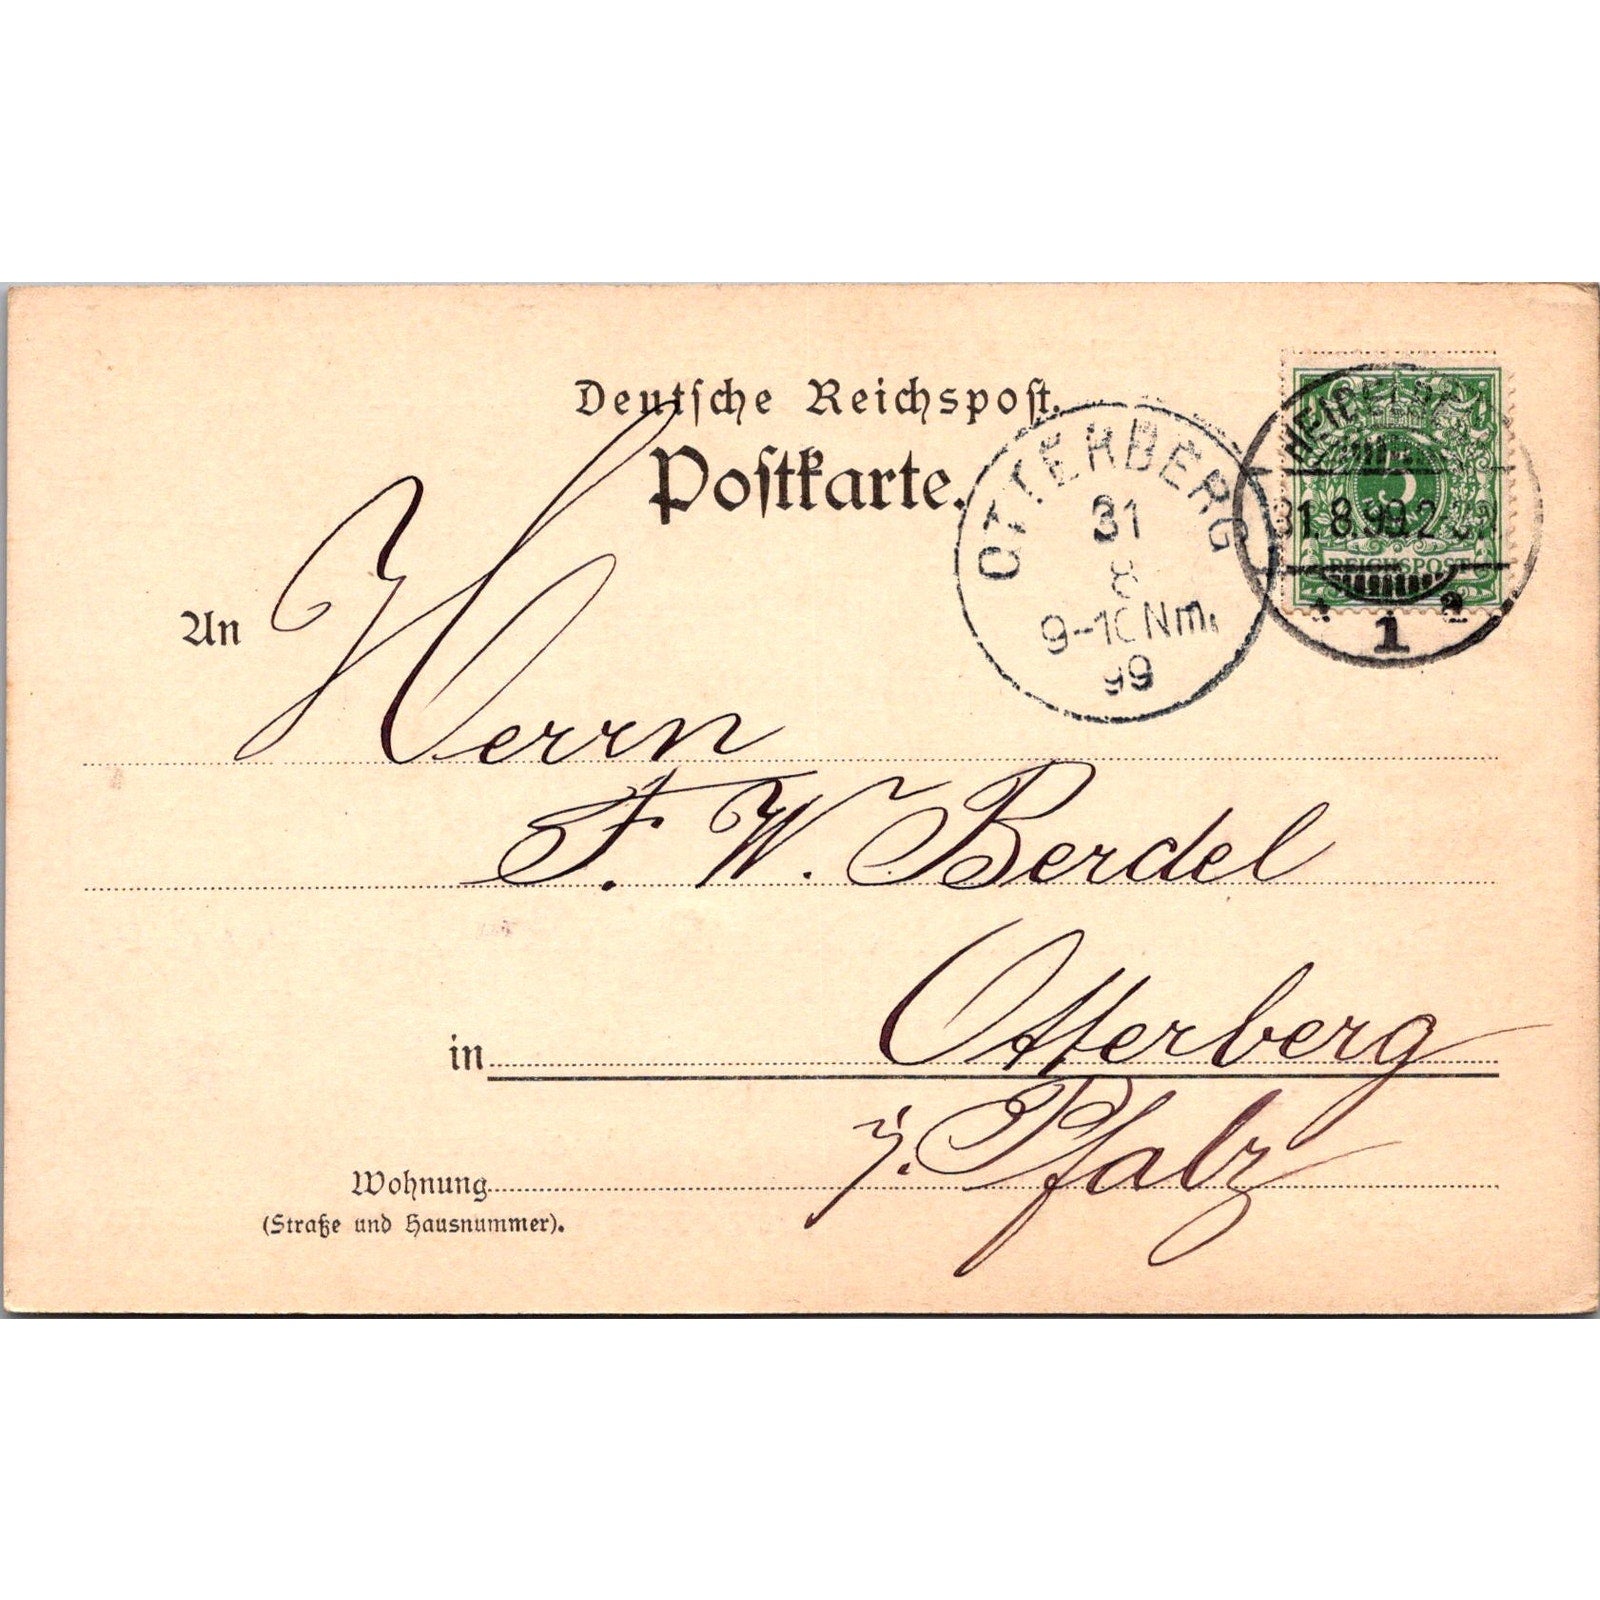 Deutsche Reichspost.
Postkarte.
OTTERBERG
31
8
9-10Nm.
99
HEIDELBERG
31.8.99.2-3N.
5
REICHSPOST
* 1 a
An Herrn
F. W. Berdel
in Otterberg
i. Pfalz
Wohnung
(Straße und Hausnummer).